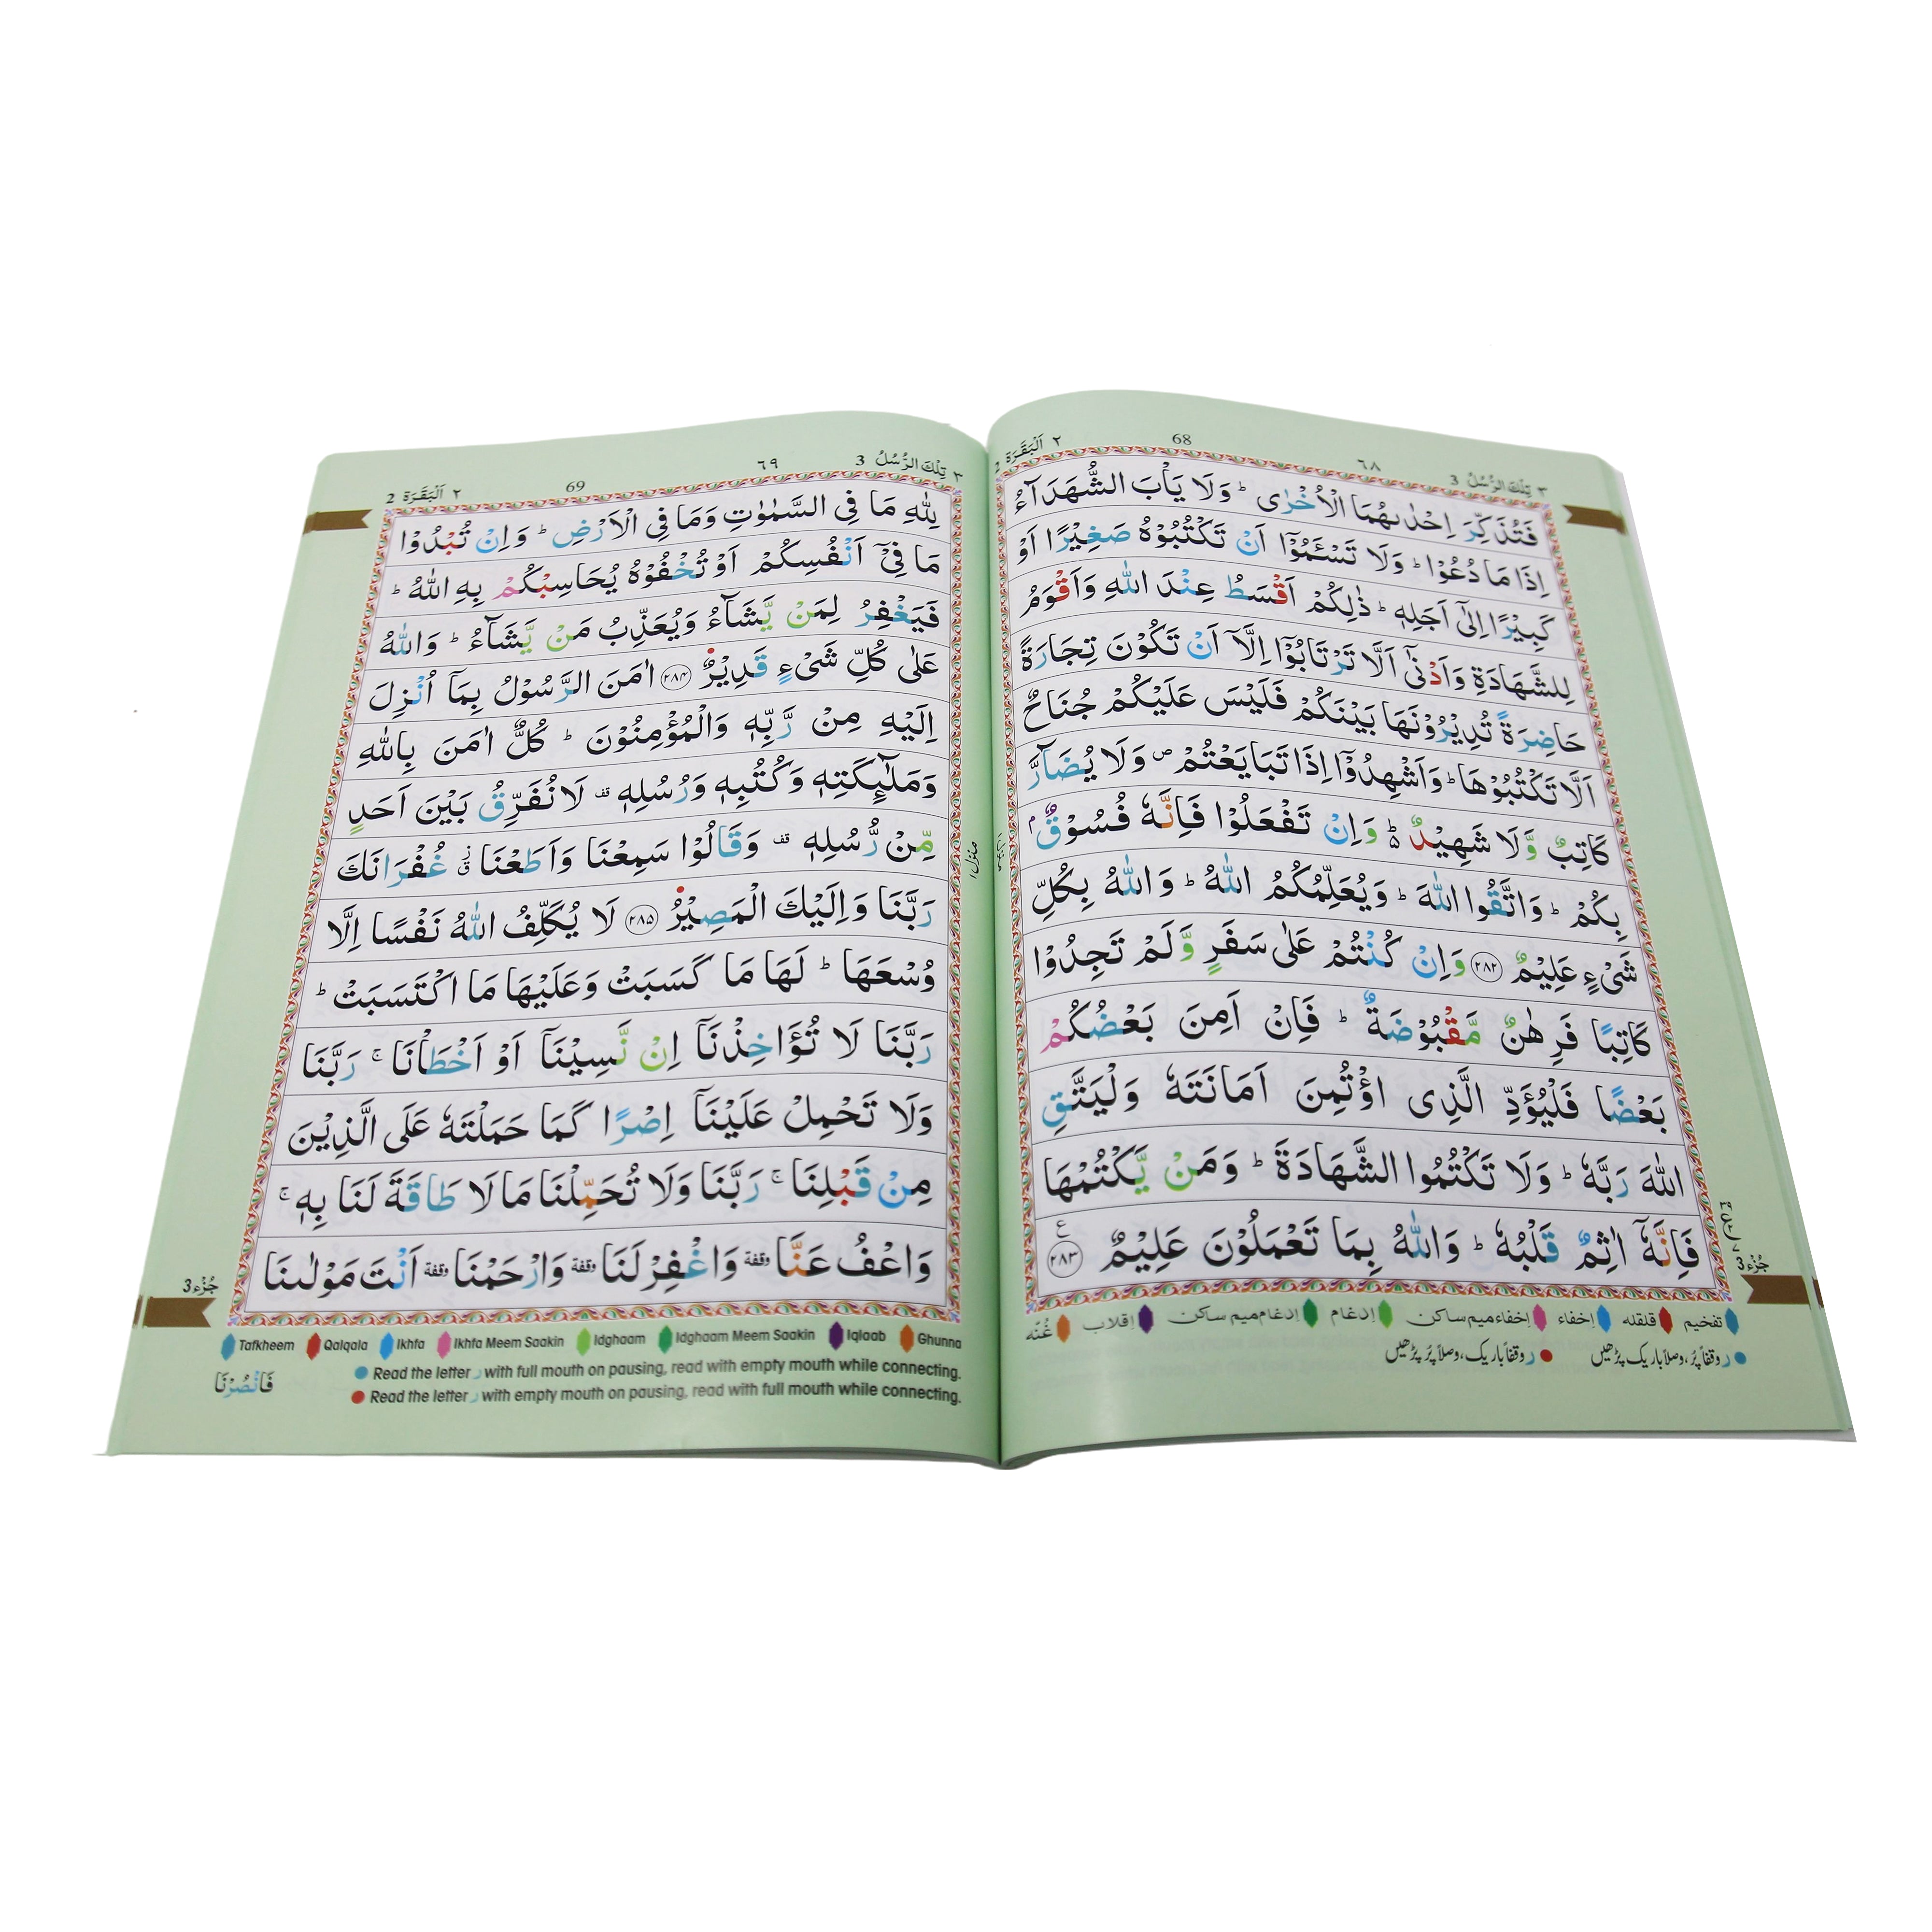 ٣ تِلْكَ الرُّسُلُ 3
٦٨
68
٢ اَلْبَقَرَة 2
فَتُذَكِّرَ اِحْدٰىهُمَا الْاُخْرٰى ؕ وَلَا يَاْبَ الشُّهَدَآءُ
اِذَا مَا دُعُوْا ؕ وَلَا تَسْـَٔمُوْۤا اَنْ تَكْتُبُوْهُ صَغِيْرًا اَوْ
كَبِيْرًا اِلٰۤى اَجَلِهٖ ؕ ذٰلِكُمْ اَقْسَطُ عِنْدَ اللّٰهِ وَاَقْوَمُ
لِلشَّهَادَةِ وَاَدْنٰۤى اَلَّا تَرْتَابُوْۤا اِلَّاۤ اَنْ تَكُوْنَ تِجَارَةً
حَاضِرَةً تُدِيْرُوْنَهَا بَيْنَكُمْ فَلَيْسَ عَلَيْكُمْ جُنَاحٌ
اَلَّا تَكْتُبُوْهَا ؕ وَاَشْهِدُوْۤا اِذَا تَبَايَعْتُمْ ۪ وَلَا يُضَآرَّ
كَاتِبٌ وَّلَا شَهِيْدٌ ؕ۬ وَاِنْ تَفْعَلُوْا فَاِنَّهٗ فُسُوْقٌۢ
بِكُمْ ؕ وَاتَّقُوا اللّٰهَ ؕ وَيُعَلِّمُكُمُ اللّٰهُ ؕ وَاللّٰهُ بِكُلِّ
شَىْءٍ عَلِيْمٌ ﴿٢٨٢﴾ وَاِنْ كُنْتُمْ عَلٰى سَفَرٍ وَّلَمْ تَجِدُوْا
كَاتِبًا فَرِهٰنٌ مَّقْبُوْضَةٌ ؕ فَاِنْ اَمِنَ بَعْضُكُمْ
بَعْضًا فَلْيُؤَدِّ الَّذِى اؤْتُمِنَ اَمَانَتَهٗ وَلْيَتَّقِ
اللّٰهَ رَبَّهٗ ؕ وَلَا تَكْتُمُوا الشَّهَادَةَ ؕ وَمَنْ يَّكْتُمْهَا
فَاِنَّهٗۤ اٰثِمٌ قَلْبُهٗ ؕ وَاللّٰهُ بِمَا تَعْمَلُوْنَ عَلِيْمٌ ﴿٢٨٣﴾ ع
جُزْء 3
تفخیم قلقله إخفاء إخفاء ميم ساكن إدغام إدغام ميم ساكن إقلاب غُنّه
ر وقفاً پُر، وصلاً باریک پڑھیں
ر وقفاً باریک، وصلاً پُر پڑھیں
٣ تِلْكَ الرُّسُلُ 3
٦٩
69
٢ اَلْبَقَرَة 2
لِلّٰهِ مَا فِى السَّمٰوٰتِ وَمَا فِى الْاَرْضِ ؕ وَاِنْ تُبْدُوْا
مَا فِىْۤ اَنْفُسِكُمْ اَوْ تُخْفُوْهُ يُحَاسِبْكُمْ بِهِ اللّٰهُ ؕ
فَيَغْفِرُ لِمَنْ يَّشَآءُ وَيُعَذِّبُ مَنْ يَّشَآءُ ؕ وَاللّٰهُ
عَلٰى كُلِّ شَىْءٍ قَدِيْرٌ ﴿٢٨٤﴾ اٰمَنَ الرَّسُوْلُ بِمَاۤ اُنْزِلَ
اِلَيْهِ مِنْ رَّبِّهٖ وَالْمُؤْمِنُوْنَ ؕ كُلٌّ اٰمَنَ بِاللّٰهِ
وَمَلٰٓئِكَتِهٖ وَكُتُبِهٖ وَرُسُلِهٖ قف لَا نُفَرِّقُ بَيْنَ اَحَدٍ
مِّنْ رُّسُلِهٖ قف وَقَالُوْا سَمِعْنَا وَاَطَعْنَا ق۫ غُفْرَانَكَ
رَبَّنَا وَاِلَيْكَ الْمَصِيْرُ ﴿٢٨٥﴾ لَا يُكَلِّفُ اللّٰهُ نَفْسًا اِلَّا
وُسْعَهَا ؕ لَهَا مَا كَسَبَتْ وَعَلَيْهَا مَا اكْتَسَبَتْ ؕ
رَبَّنَا لَا تُؤَاخِذْنَاۤ اِنْ نَّسِيْنَاۤ اَوْ اَخْطَاْنَا ۚ رَبَّنَا
وَلَا تَحْمِلْ عَلَيْنَاۤ اِصْرًا كَمَا حَمَلْتَهٗ عَلَى الَّذِيْنَ
مِنْ قَبْلِنَا ۚ رَبَّنَا وَلَا تُحَمِّلْنَا مَا لَا طَاقَةَ لَنَا بِهٖ ۚ
وَاعْفُ عَنَّا وقفة وَاغْفِرْ لَنَا وقفة وَارْحَمْنَا وقفة اَنْتَ مَوْلٰىنَا
منزل ١
جُزْء 3
Tafkheem Qalqala Ikhfa Ikhfa Meem Saakin Idghaam Idghaam Meem Saakin Iqlaab Ghunna
Read the letter ر with full mouth on pausing, read with empty mouth while connecting.
Read the letter ر with empty mouth on pausing, read with full mouth while connecting.
فَانْصُرْنَا